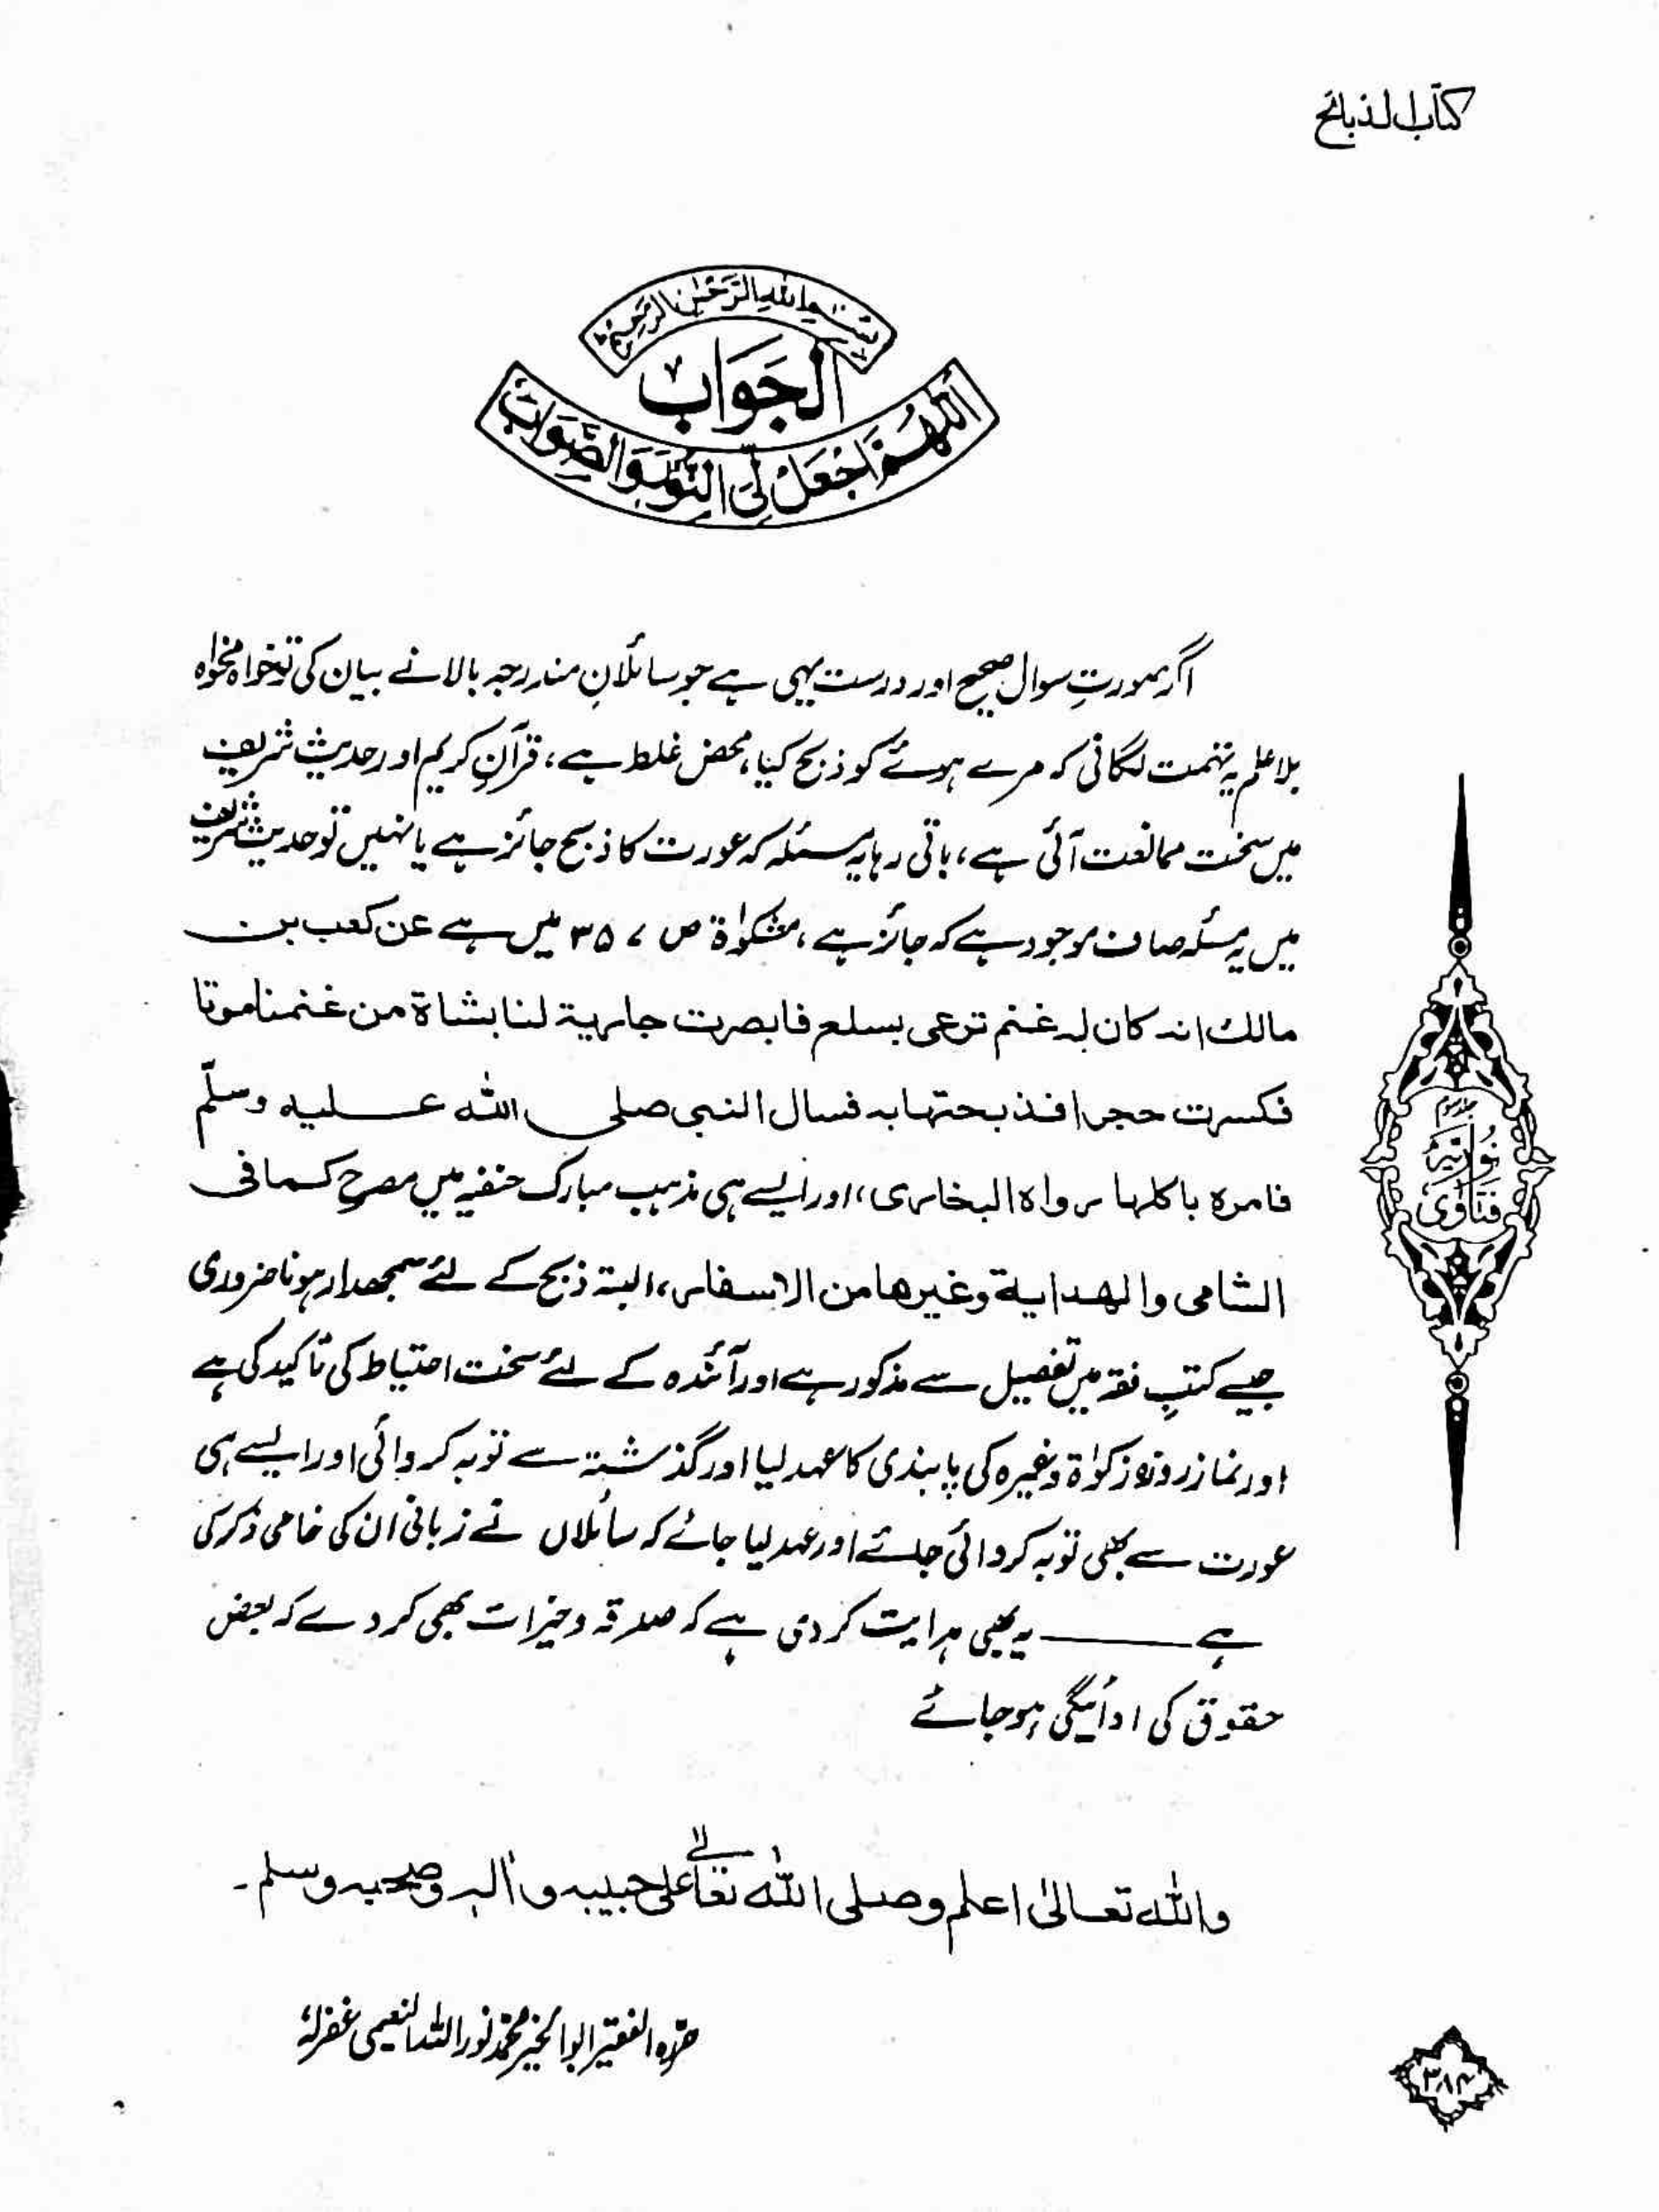 کتاب الذبائح
بسم الله الرحمن الرحيم
الجواب
اللهم اجعل لي النور والصواب
اگر بصورتِ سوال صحیح اور درست یہی ہے جو سائلانِ مندرجہ بالا نے بیان کی تو خواہ مخواہ
بلا علم یہ تہمت لگانی کہ مرے ہوئے کو ذبح کیا، محض غلط ہے، قرآنِ کریم اور حدیث شریف
میں سخت ممانعت آئی ہے، باقی رہا یہ مسئلہ کہ عورت کا ذبح جائز ہے یا نہیں تو حدیث شریف
میں یہ مسئلہ صاف موجود ہے کہ جائز ہے، مشکوٰۃ ص ۳۵۷ میں ہے عن كعب بن
مالك انه كان له غنم ترعى بسلع فابصرت جارية لنا بشاة من غنمنا موتا
فكسرت حجرا فذبحتها به فسال النبى صلى الله عليه وسلّم
فامره باكلها رواه البخارى، اور ایسے ہی مذہب مبارک حنفیہ میں مصرح كما فى
الشامى والهداية وغيرها من الاسفار، البتہ ذبح کے لئے سمجھدار ہونا ضروری
جیسے کتبِ فقہ میں تفصیل سے مذکور ہے اور آئندہ کے لئے سخت احتیاط کی تاکید کی ہے
اور نماز روزہ زکوٰۃ وغیرہ کی پابندی کا عہد لیا اور گذشتہ سے توبہ کروائی اور ایسے ہی
عورت سے بھی توبہ کروائی جائے اور عہد لیا جائے کہ سائلاں نے زبانی ان کی خامی ذکر کی
ہے ــــــــ یہ بھی ہدایت کر دی ہے کہ صدقہ و خیرات بھی کر دے کہ بعض
حقوق کی ادائیگی ہو جائے
والله تعالىٰ اعلم وصلى الله تعالىٰ على حبيبه واٰله وصحبه وسلم۔
حرّہ الفقیر ابوالخیر محمد نور اللہ النعیمی غفرلہٗ
جلد سوم
فتاوی نوریہ
۳۸۴